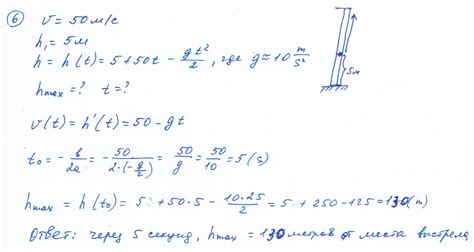 6
v = 50 м/с
h₁ = 5м
h = h(t) = 5 + 50t - gt²/2, где g ≈ 10 m/s²
5м
hmax = ? t = ?
v(t) = h'(t) = 50 - gt
t₀ = - b/2a = - 50/(2·(-g/2)) = 50/g = 50/10 = 5 (s)
hmax = h(t₀) = 5 + 50·5 - 10·25/2 = 5 + 250 - 125 = 130 (m)
Ответ: через 5 секунд, hmax = 130 метров от места выстрела